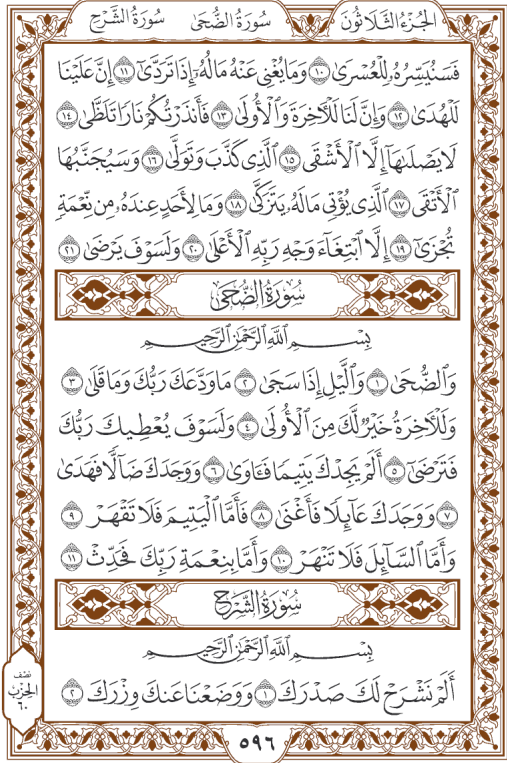 الجُزْءُ الثَّلَاثُونَ سُورَةُ الضُّحَى سُورَةُ الشَّرْح
فَسَنُيَسِّرُهُۥ لِلْعُسْرَىٰ ١٠ وَمَا يُغْنِى عَنْهُ مَالُهُۥٓ إِذَا تَرَدَّىٰٓ ١١ إِنَّ عَلَيْنَا
لَلْهُدَىٰ ١٢ وَإِنَّ لَنَا لَلْءَاخِرَةَ وَٱلْأُولَىٰ ١٣ فَأَنذَرْتُكُمْ نَارًا تَلَظَّىٰ ١٤
لَا يَصْلَىٰهَآ إِلَّا ٱلْأَشْقَى ١٥ ٱلَّذِى كَذَّبَ وَتَوَلَّىٰ ١٦ وَسَيُجَنَّبُهَا
ٱلْأَتْقَى ١٧ ٱلَّذِى يُؤْتِى مَالَهُۥ يَتَزَكَّىٰ ١٨ وَمَا لِأَحَدٍ عِندَهُۥ مِن نِّعْمَةٍ
تُجْزَىٰٓ ١٩ إِلَّا ٱبْتِغَآءَ وَجْهِ رَبِّهِ ٱلْأَعْلَىٰ ٢٠ وَلَسَوْفَ يَرْضَىٰ ٢١
سُورَةُ الضُّحَى
بِسْمِ ٱللَّهِ ٱلرَّحْمَٰنِ ٱلرَّحِيمِ
وَٱلضُّحَىٰ ١ وَٱلَّيْلِ إِذَا سَجَىٰ ٢ مَا وَدَّعَكَ رَبُّكَ وَمَا قَلَىٰ ٣
وَلَلْءَاخِرَةُ خَيْرٌ لَّكَ مِنَ ٱلْأُولَىٰ ٤ وَلَسَوْفَ يُعْطِيكَ رَبُّكَ
فَتَرْضَىٰٓ ٥ أَلَمْ يَجِدْكَ يَتِيمًا فَـَٔاوَىٰ ٦ وَوَجَدَكَ ضَآلًّا فَهَدَىٰ
٧ وَوَجَدَكَ عَآئِلًا فَأَغْنَىٰ ٨ فَأَمَّا ٱلْيَتِيمَ فَلَا تَقْهَرْ ٩
وَأَمَّا ٱلسَّآئِلَ فَلَا تَنْهَرْ ١٠ وَأَمَّا بِنِعْمَةِ رَبِّكَ فَحَدِّثْ ١١
سُورَةُ الشَّرْح
بِسْمِ ٱللَّهِ ٱلرَّحْمَٰنِ ٱلرَّحِيمِ
أَلَمْ نَشْرَحْ لَكَ صَدْرَكَ ١ وَوَضَعْنَا عَنكَ وِزْرَكَ ٢
نصف
الحزب
٦٠
٥٩٦